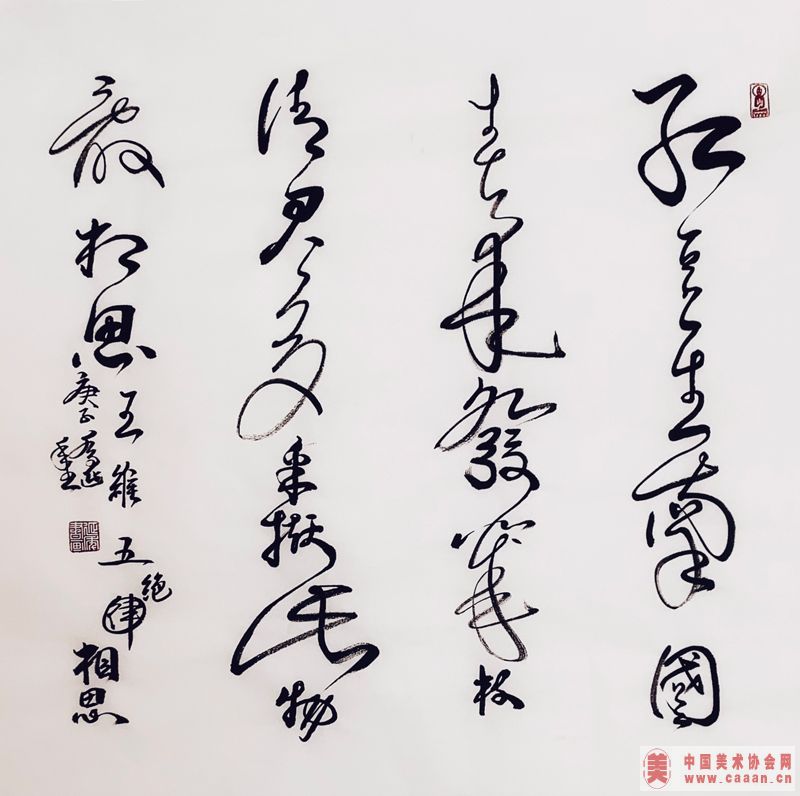 红豆生南國
春来發幾枝
请君多采撷此物
最相思
王維五律絕相思
庚子
中国美术协会网
www.caaan.cn
美